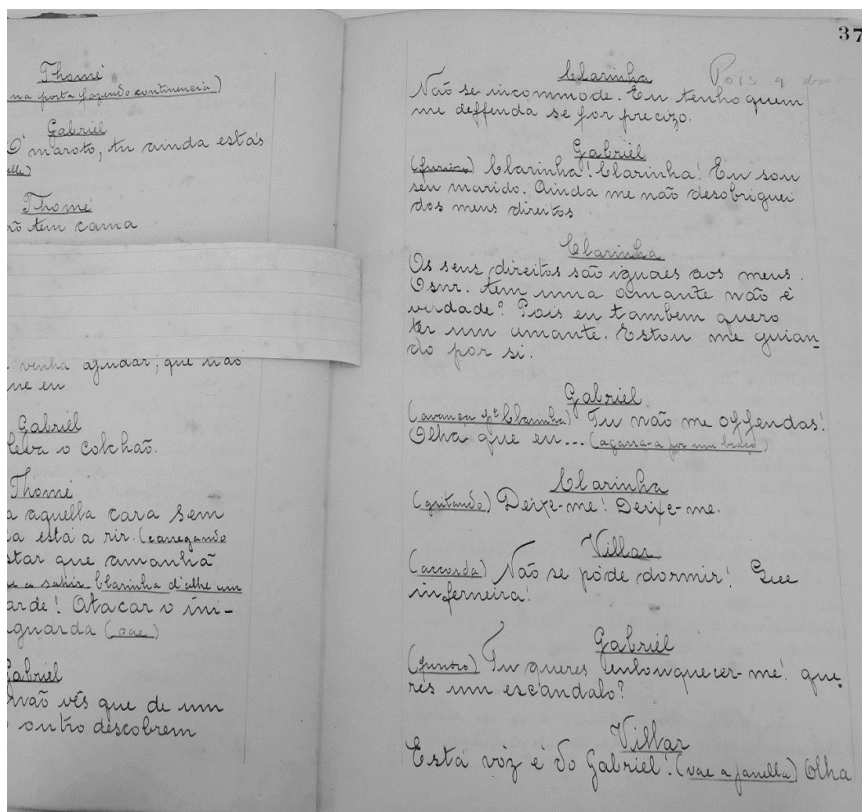 Thomé
na porta fazendo continencia)
Gabriel
O' maroto, tu ainda estás
elle)
Thomé
não tem cama
venha ajudar, que não
que eu
Gabriel
leva o colchão.
Thomé
a aquella cara sem
a está a rir. (carregando
star que amanhã
e a sahir Clarinha d'alhe um
arde! Atacar o ini-
guarda (sae)
Gabriel
não vês que de um
outro descobrem
37
Pois q
Clarinha
Não se incommode. Eu tenho quem
me deffenda se for precizo.
Gabriel
(furioso) Clarinha! Clarinha! Eu sou
seu marido. Ainda me não desobriguei
dos meus direitos
Clarinha
Os seus direitos são iguaes aos meus.
Osnr. tem uma amante não é
verdade? Pois eu tambem quero
ter um amante. Estou me guian-
do por si.
Gabriel
(avança pª Clarinha) Tu não me offendas!
Olha que eu... (agarra-a por um braço)
Clarinha
(gritando) Deixe-me! Deixe-me.
Villar
(accorda) Não se póde dormir! Que
inferneira!
Gabriel
(furioso) Tu queres enlouquecer-me! que-
res um escândalo?
Villar
Está vóz é do Gabriel! (vae a janella) Olha